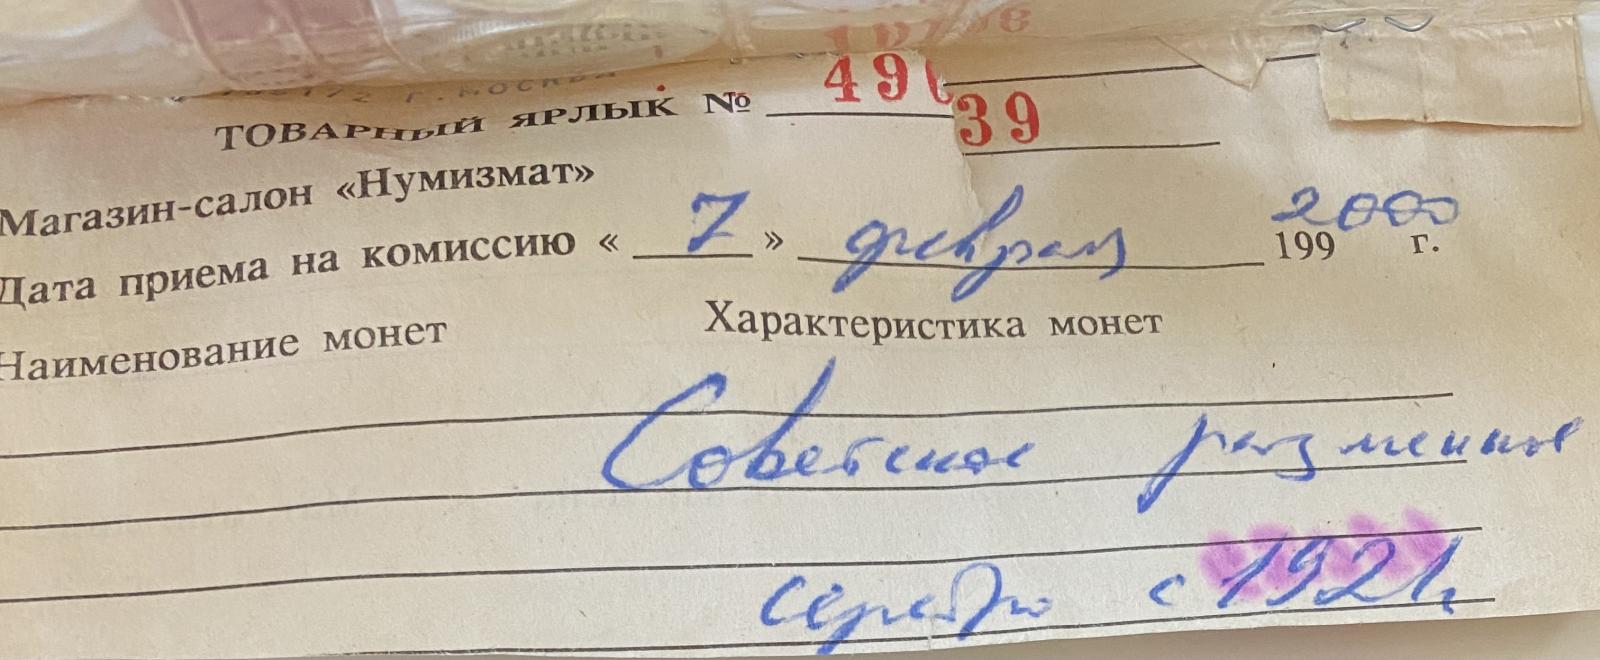 г. Москва
ТОВАРНЫЙ ЯРЛЫК № 490
39
Магазин-салон «Нумизмат»
Дата приема на комиссию « 7 » февраля 2000 199 г.
Наименование монет Характеристика монет
Советское разменное
серебро с 1921г.